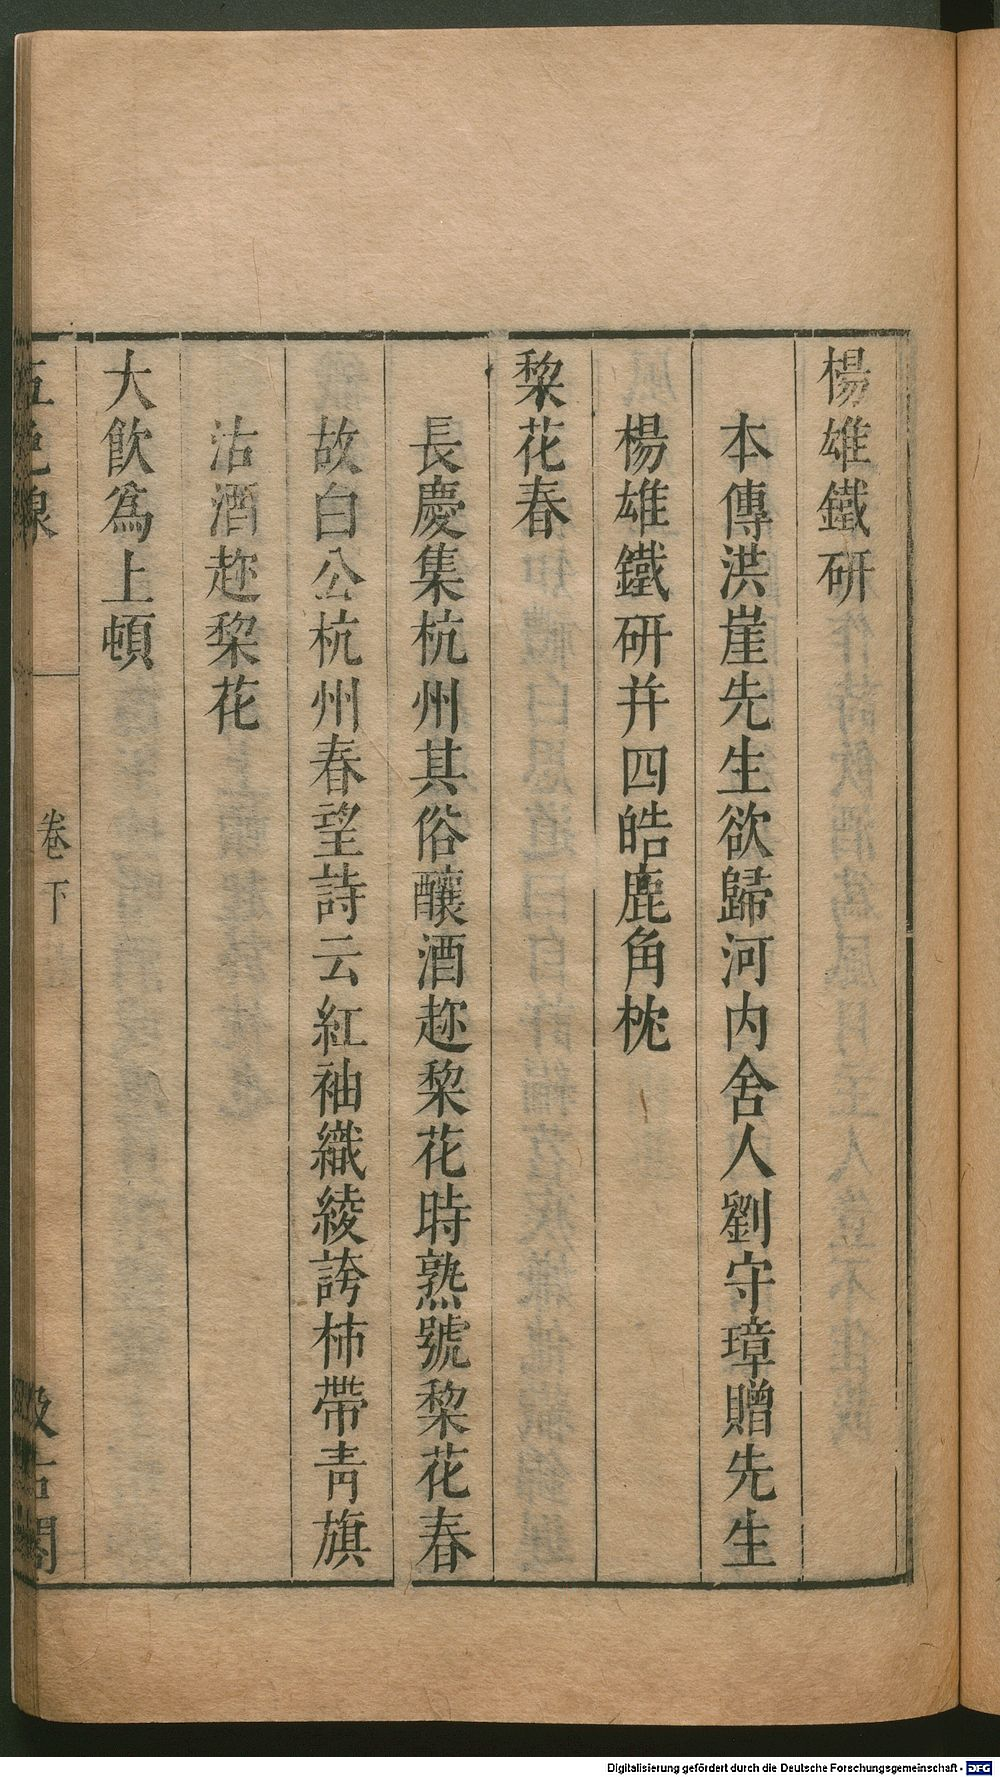 楊雄鐵研
本傳洪崖先生欲歸河内舍人劉守璋贈先生
楊雄鐵研并四皓鹿角枕
棃花春
長慶集杭州其俗釀酒趂棃花時熟號棃花春
故白公杭州春望詩云紅袖織綾誇柿帶青旗
沽酒趂棃花
大飲爲上頓
五色線
卷下
汲古閣
Digitalisierung gefördert durch die Deutsche Forschungsgemeinschaft - DFG